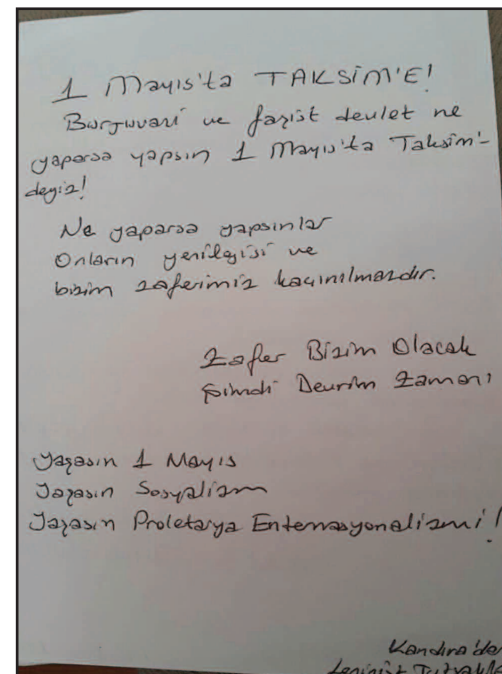 1 Mayıs'ta TAKSİM'E!
Burjuvazi ve faşist devlet ne
yaparsa yapsın 1 Mayıs'ta Taksim'-
deyiz!
Ne yaparsa yapsınlar
Onların yenilgisi ve
bizim zaferimiz kaçınılmazdır.
Zafer Bizim Olacak
Şimdi Devrim Zamanı
Yaşasın 1 Mayıs
Yaşasın Sosyalizm
Yaşasın Proletarya Enternasyonalizmi!
Kandıra'dan
Leninist Tutsaklar